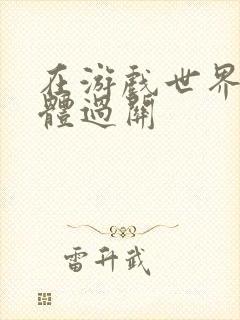 在游戏世界
體過關
雷升武